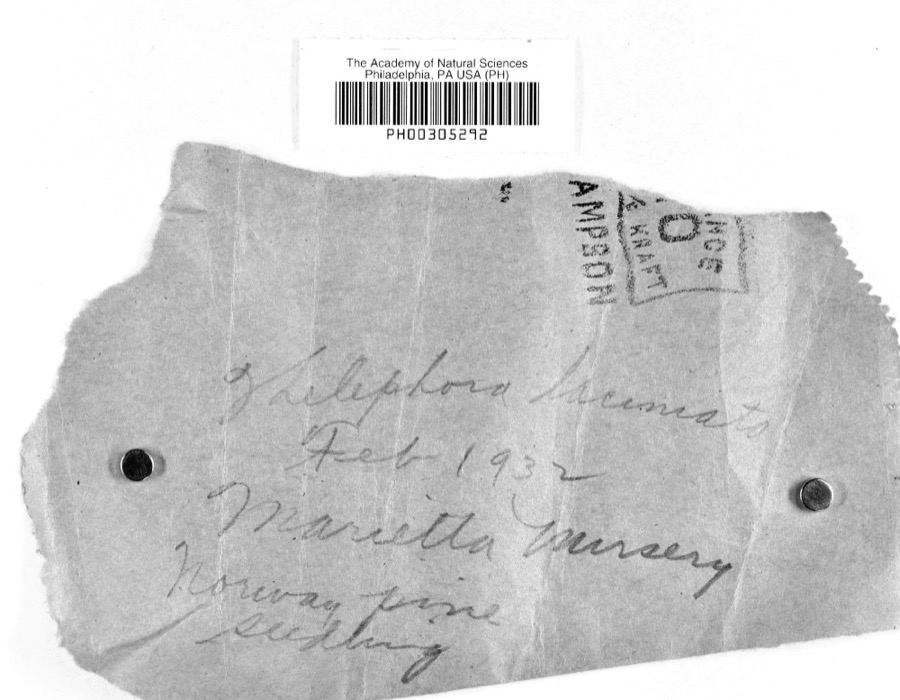 The Academy of Natural Sciences
Philadelphia, PA USA (PH)
PH00305292
AMPSON
& KRAFT
Thelephora laciniata
Feb 1932
Marietta Nursery
Norway pine
seedling